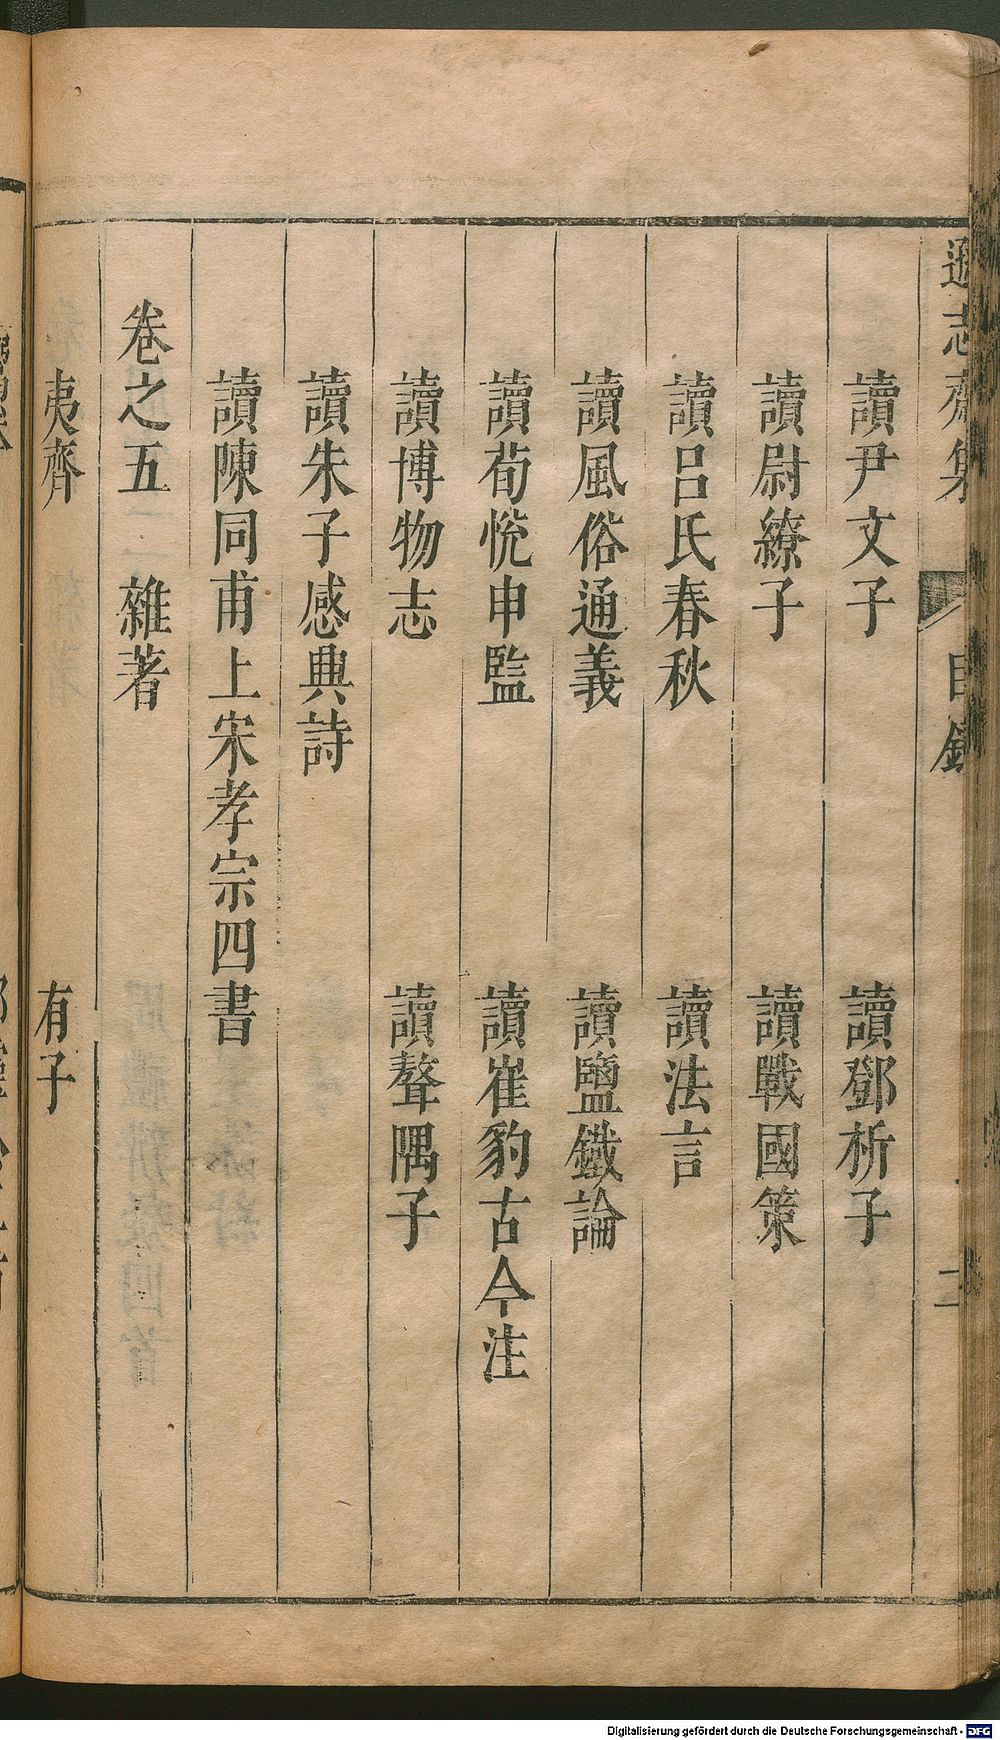 遜志齋集
目錄
二
讀尹文子　讀鄧析子
讀尉繚子　讀戰國策
讀呂氏春秋　讀法言
讀風俗通義　讀鹽鐵論
讀荀悅申監　讀崔豹古今注
讀博物志　讀聱隅子
讀朱子感興詩
讀陳同甫上宋孝宗四書
卷之五　雜著
夷齊　有子
Digitalisierung gefördert durch die Deutsche Forschungsgemeinschaft - DFG